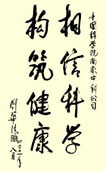 中国科学院南京中科公司
相信科学
构筑健康